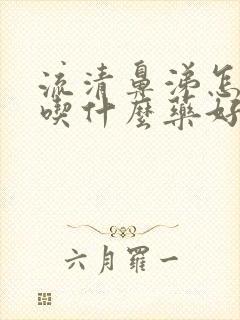 流清鼻涕怎
喫什麼藥好
六月羅一